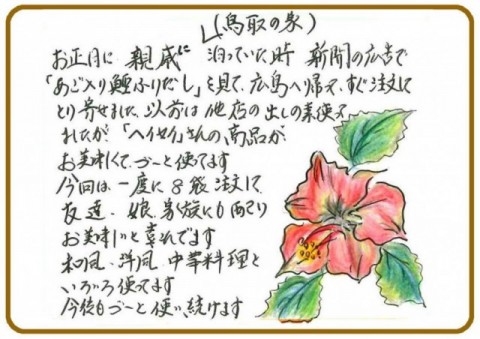 (鳥取の家)
お正月に親戚に泊っていた時 新聞の広告で
「あご入り鰹ふりだし」を見て、広島へ帰って、すぐ注文して
とり寄せました。以前は他店の出しの素使って
ましたが「ヘイセイ」さんの商品が
お美味くてズーと使ってます
今回は一度に8袋注文して
友達、娘、家族にもあてり
お美味いと喜んでます
和風、洋風、中華料理と
いろいろ使ってます
今後もズーと使い続けます